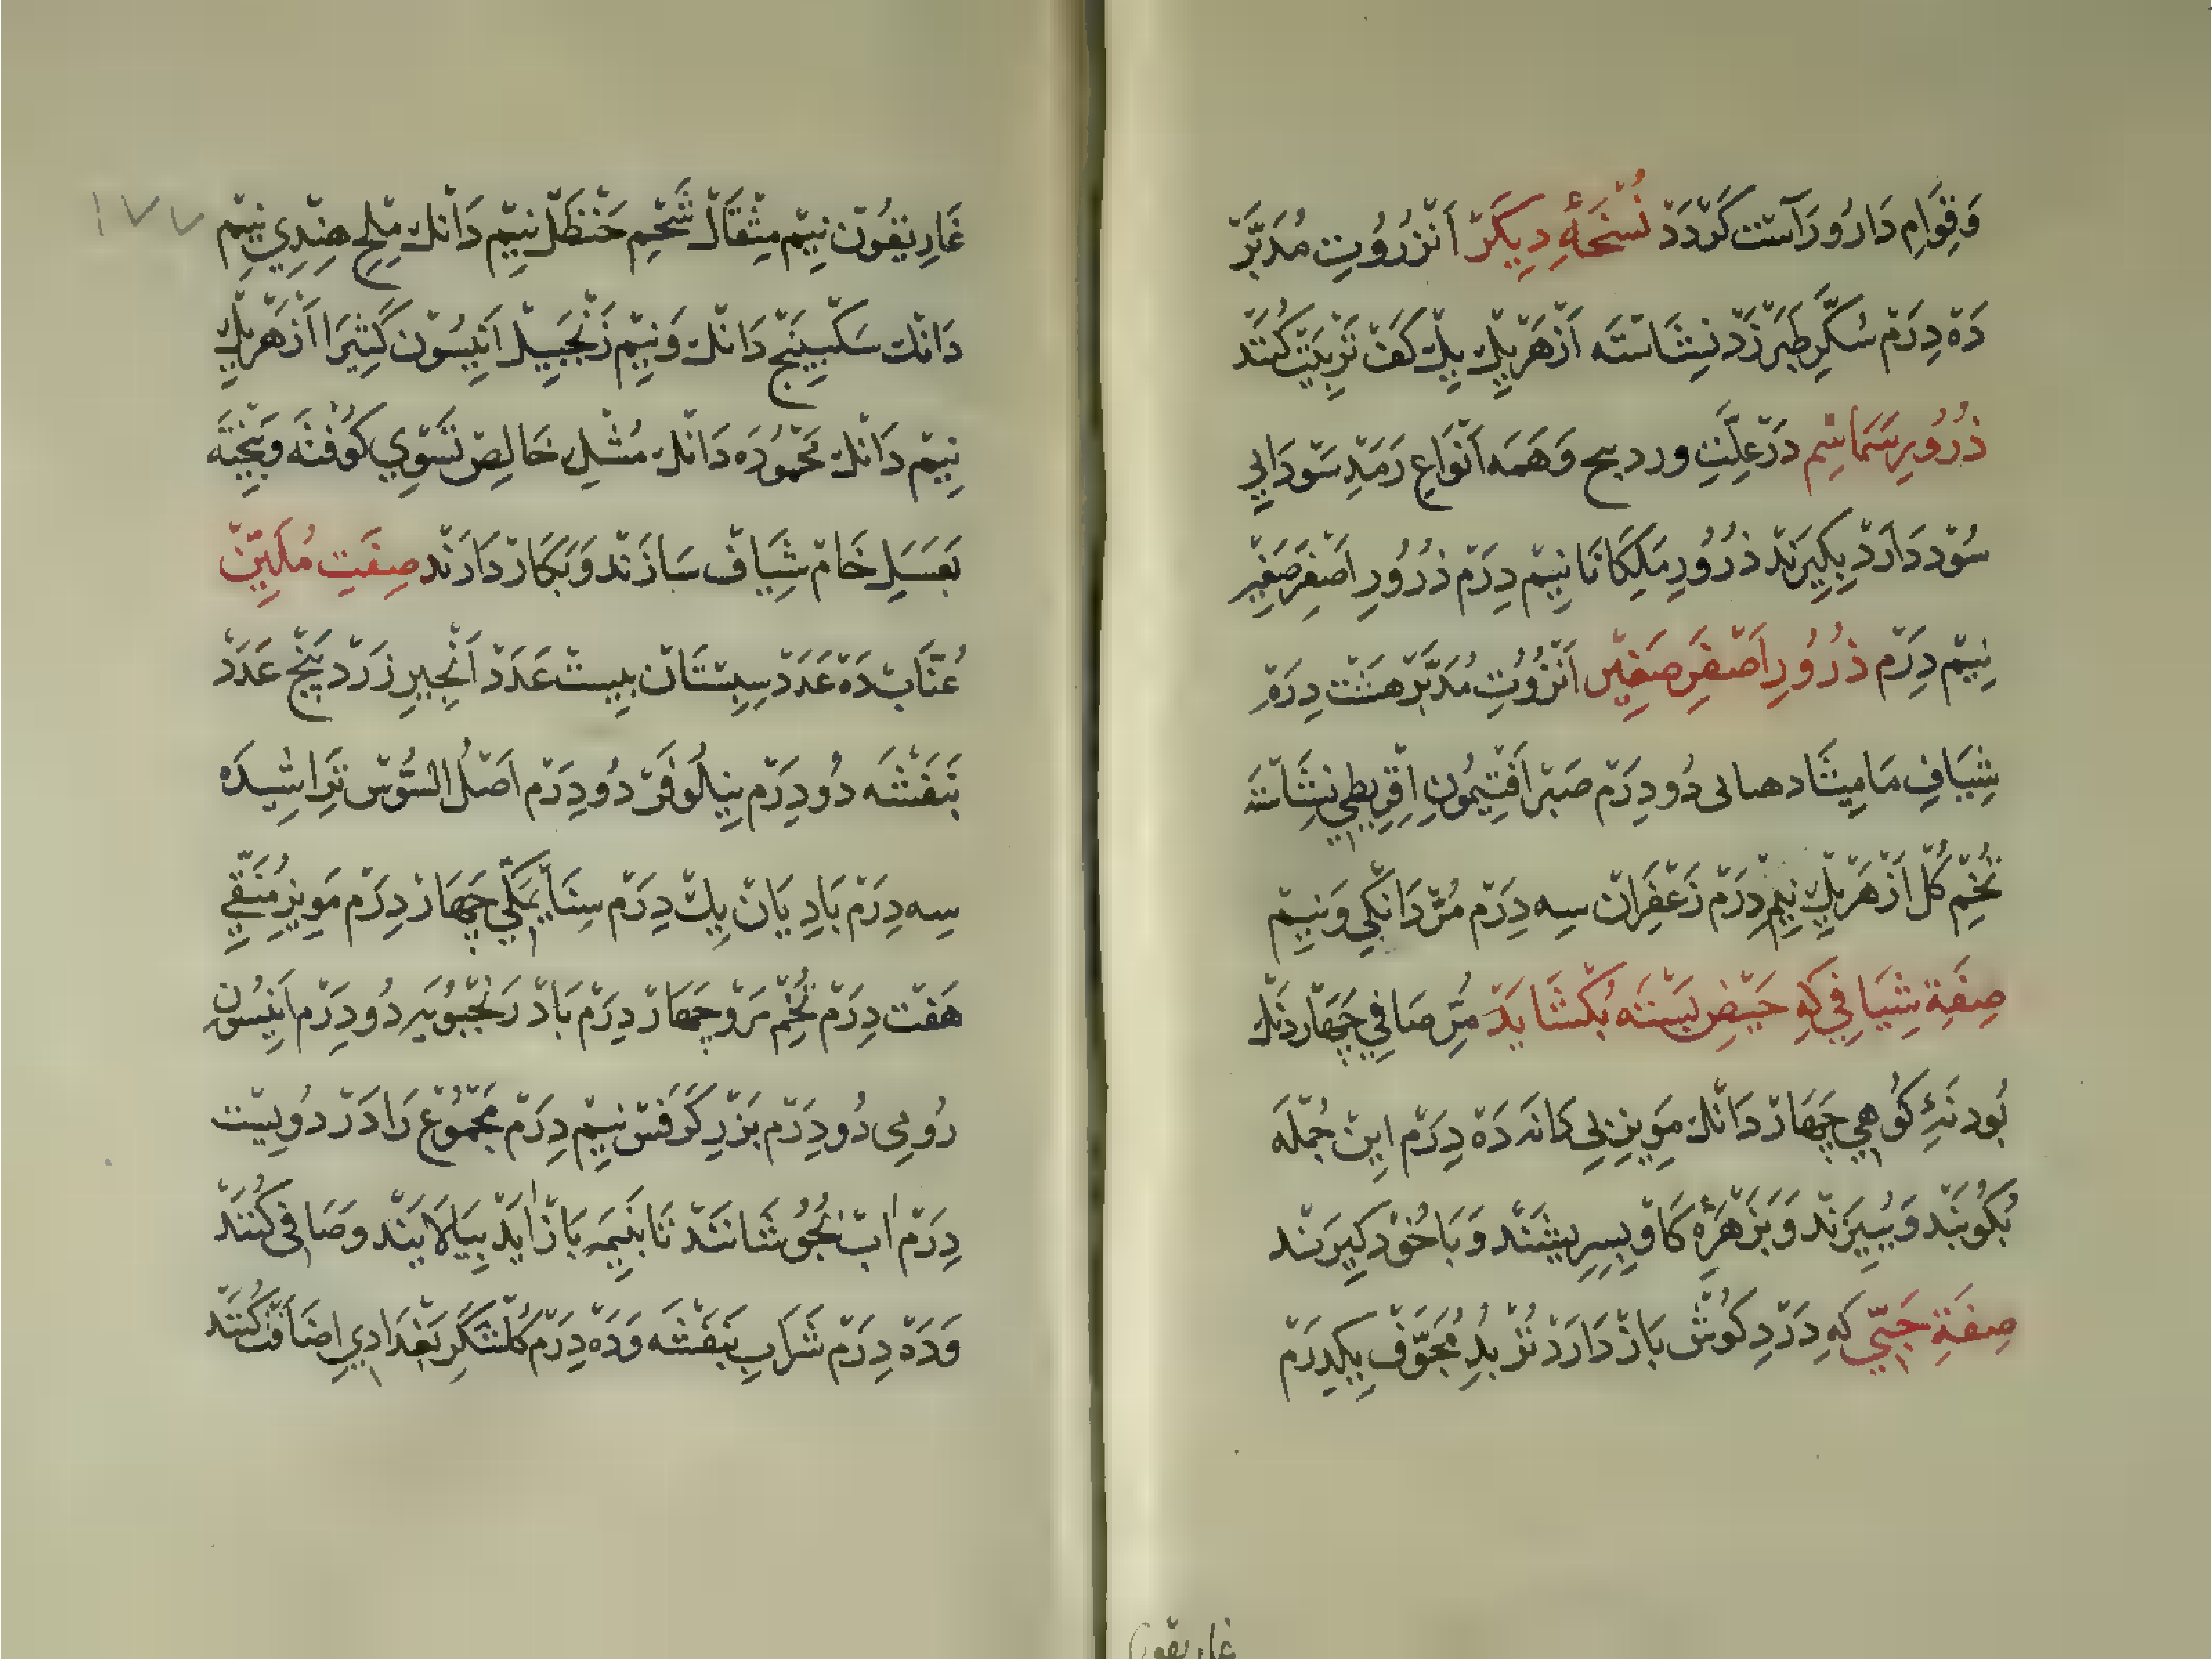 وَقِوَامِ دَارُو رَاسْت گَرْدَدْ نُسْخَهٔ دِیکَرْ اَنْزَرُوُتِ مُدَبَّرْ
دَهْ دِرَمْ سُکَّرِ طَبَرْزَدْ نِشَاسْتَه اَزْهَرْیِكِ یِكْ کَفْ تَرْبِیَتْ کُنَنَدْ
ذرُوُرِ سَمَاسِم دَرْ عِلَّتِ وردىىج وَهَمَه اَنْوَاعِ رَمَدِ سَوْدَایِي
سُوْد دَارَدْ بِکِیرَنْدْ ذرُوُرِ مَلِکَانَا نِیمْ دِرَمْ ذرُوُرِ اَصْفَرِ صَغِیْر
نِیمْ دِرَمْ ذرُوُرِ اَصْفَرِ صَغِیْر اَنْزَرُوُتِ مُدَبَّرْ هَشْت دِرَمْ
شِیَافِ مَامِیثَا دُو دِرَمْ صَبْر اَفْتِیمُونِ اِقْرِیطِي نِشَاسْتَه
تُخْمِ گُلْ اَزْهَرْیِكِ نِیمْ دِرَمْ زَعْفَرَانْ سِه دِرَمْ مُرّ دَانْکِي وَنِیمْ
صِفَةِ شِیَافِي کِه حَیْضِ بَسْتَه بُکْشَایَدْ مُرِّ صَافِي چَهَارْ دَنْكْ
بُودنَهِٔ کُوهِي چَهَارْ دَانْكْ مَوِیزِ بِي دَانَه دَهْ دِرَمْ اِینْ جُمْلَه
بُکُوبَنْد وَبُبِیزَنْد وَبَزَهْرَهِٔ کَاوْ بِسِرِیشَنْد وَبَاخُوْد کِیرَنْد
صِفَةِ حَبِّي کِه دَرْدِ کُوشْ بَازْ دَارَدْ تُرْبُدِ مُجَوَّفْ یِکدِرَمْ
غاریقون
۱۷۷
غَارِیقُوْن نِیمْ مِثْقَالْ شَحْمِ حَنْظَلْ نِیمْ دَانْكْ مِلْحِ هِنْدِي نِیمْ
دَانْكْ سَکْبِینَجْ دَانْكْ وَنِیمْ زَنْجَبِیلْ اَنِیسُوْن کَثِیْرَا اَزْهَرْیِكِ
نِیمْ دَانْكْ مَحْمُوْدَه دَانْكْ مُشْكِ خَالِصْ تَسُّوِي کُوفْتَه وَبِخْتَه
بَعَسَلِ خَامْ شِیَافْ سَازَنْد وَبَکَارْ دَارَنْد صِفَتِ مُلَیِّنْ
عُنَّابْ دَهْ عَدَدْ سِبِسْتَانْ بِیسْتْ عَدَدْ اَنْجِیرِ زَرْد پَنْجْ عَدَدْ
بَنَفْشَه دُو دِرَمْ نِیلُوفَرْ دُو دِرَمْ اَصْلُ السُّوْسْ تَرَاشِیدَه
سِه دِرَمْ بَادِیَانْ یِكْ دِرَمْ سَنَاءِ مَکِّي چَهَارْ دِرَمْ مَوِیزِ مُنَقَّي
هَفْت دِرَمْ تُخْمِ مَرْو چَهَارْ دِرَمْ بَادْرَنْجْبُوْیَه دُو دِرَمْ اَنِیسُوْنِ
رُومِی دُو دِرَمْ بَزْرِ کَرَفْسْ نِیمْ دِرَمْ مَجْمُوْعْ رَا دَرْ دُوِیسْت
دِرَمْ آبْ بَجُوشَانَنْد تَا بَنِیمَه بَازْ آیَدْ بِیَالَایَنْد وَصَافِی کُنَنَدْ
وَدَهْ دِرَمْ شَرَابِ بَنَفْشَه وَدَهْ دِرَمْ کُلْشَکَرِ بَغْدَادِيِ اضَافَتْ کُنَنَدْ